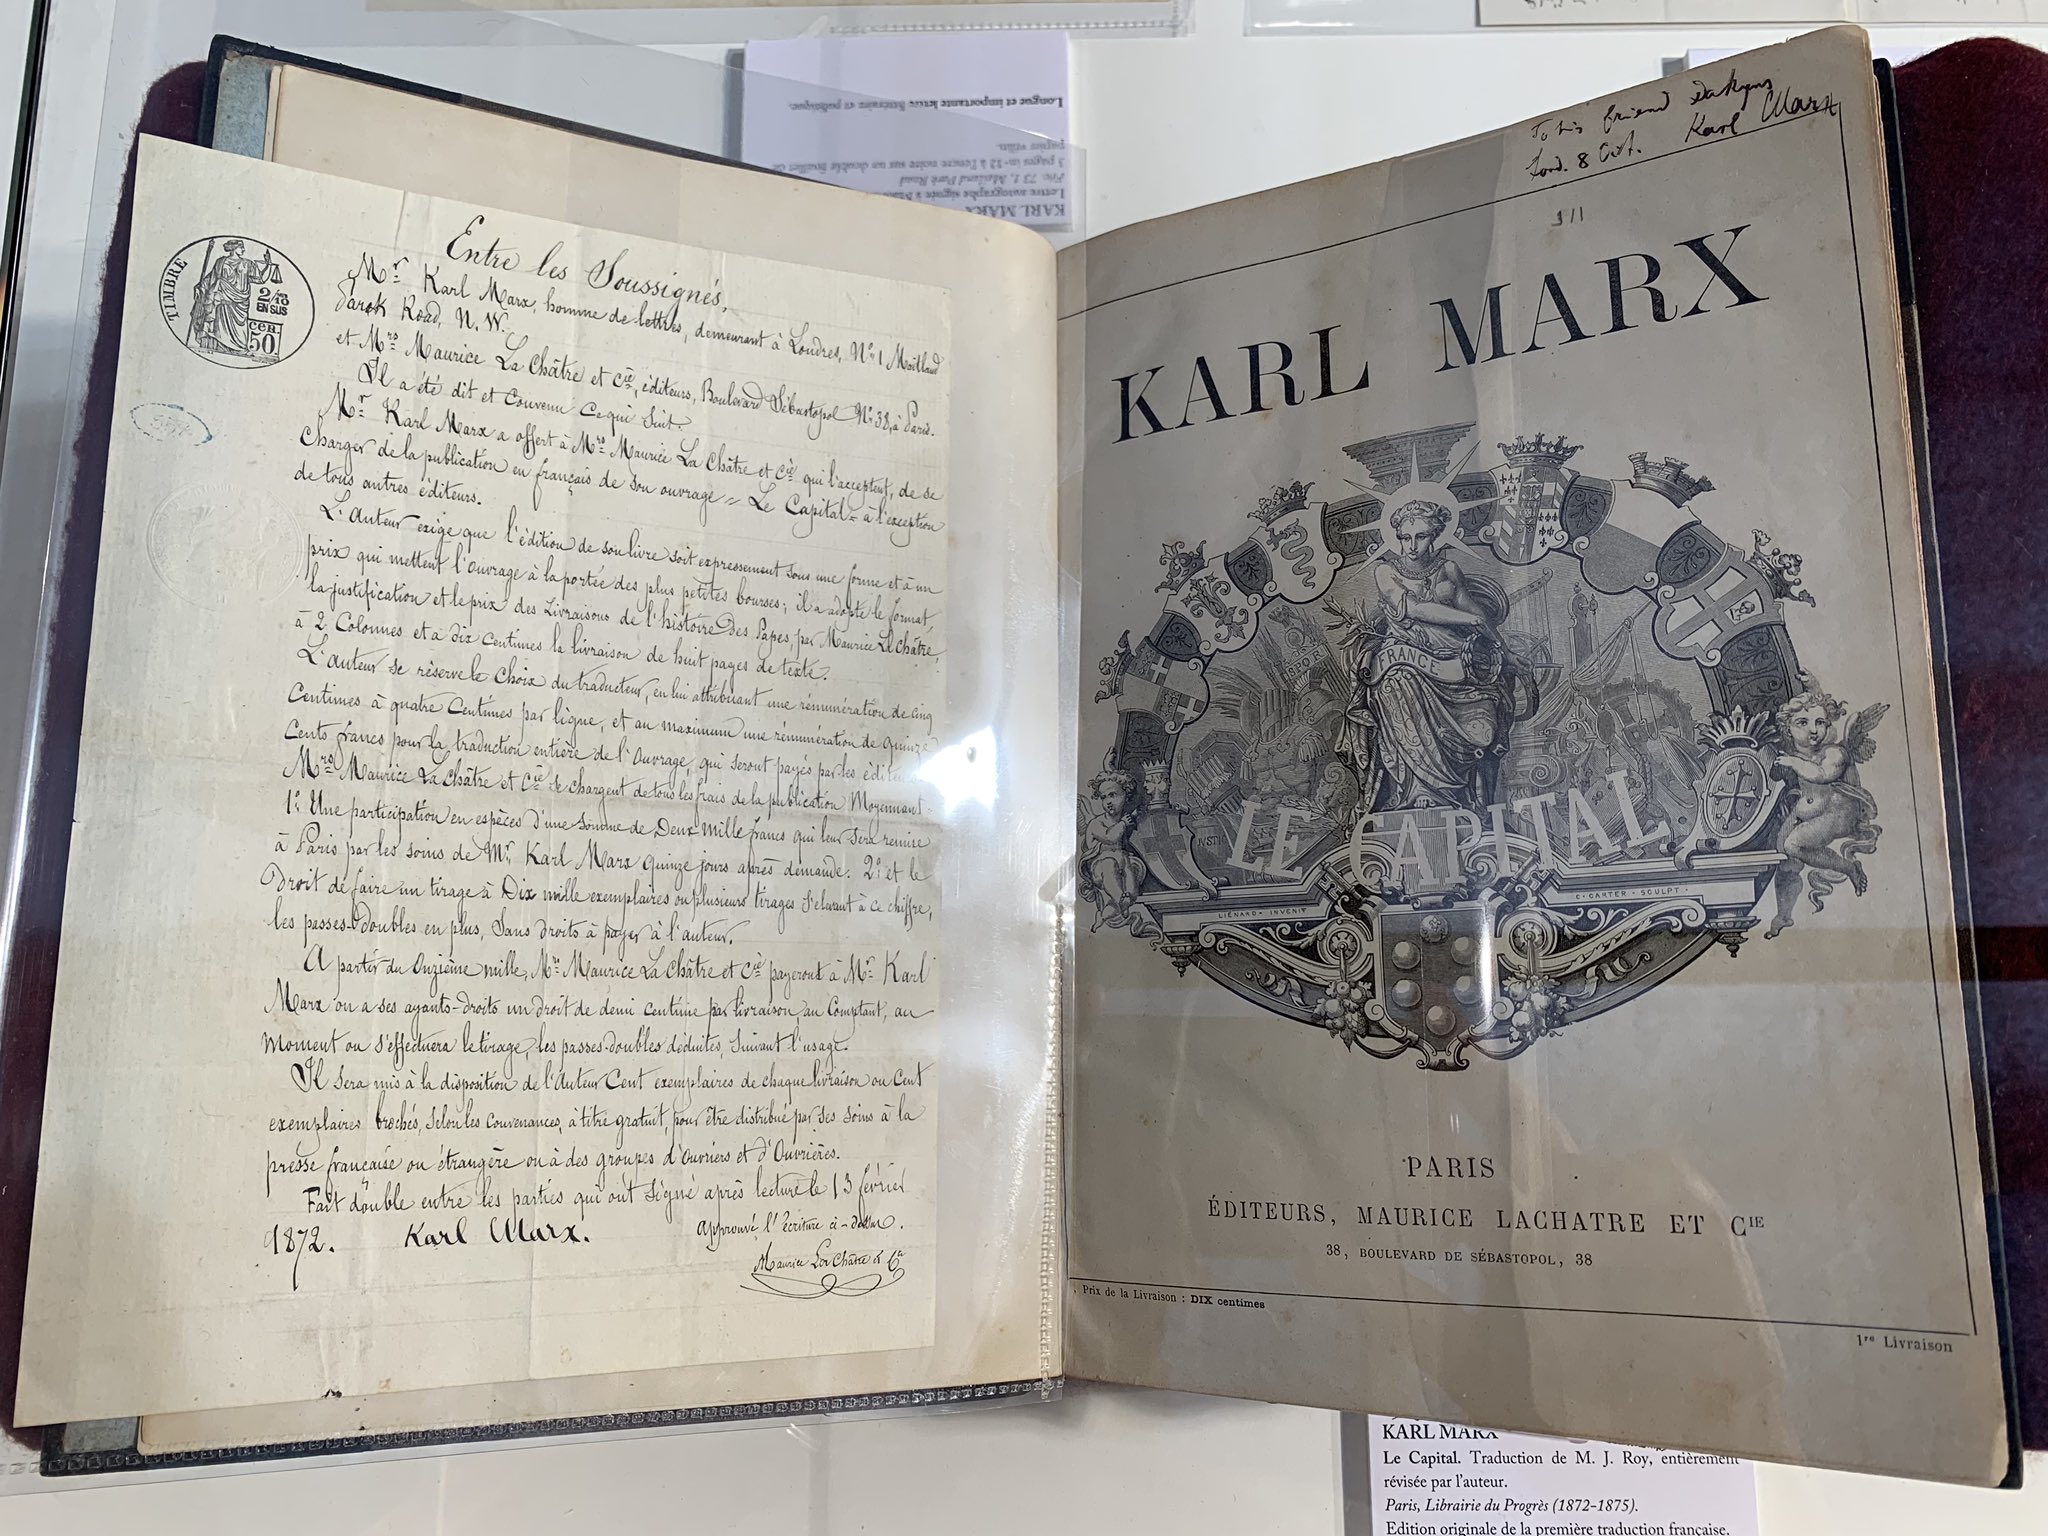 Longue et importante lettre littéraire et politique.
papier vélin.
3 pages in-12 à l'encre noire sur un double feuillet de
1, Maitland Park Road
Lettre autographe signée à
KARL MARX
TIMBRE
2/10
EN SUS
CEN.
50
Entre les Soussignés,
Mr. Karl Marx, homme de lettres, demeurant à Londres, No. 1 Maitland
Parck Road, N.W.
et Mrs Maurice La Châtre et Cie, éditeurs, Boulevard Sébastopol No. 38, à Paris.
Il a été dit et Convenu Ce qui Suit.
Mr Karl Marx a offert à Mrs Maurice La Châtre et Cie qui l'acceptent, de se
Charger de la publication en français de son ouvrage = Le Capital = à l'exception
de tous autres éditeurs.
L'Auteur exige que l'édition de son livre soit expressement sous une forme et à un
prix qui mettent l'Ouvrage à la portée des plus petites bourses; il a adopté le format,
la justification et le prix des Livraisons de l'histoire des Papes, par Maurice La Châtre,
à 2 Colonnes et à dix centimes la livraison de huit pages de texte.
L'auteur se réserve le Choix du traducteur, en lui attribuant une rémunération de cinq
Centimes à quatre Centimes par ligne, et au maximum une rémunération de quinze
Cents francs pour la traduction entière de l'Ouvrage, qui seront payés par les éditeurs.
Mrs Maurice La Châtre et Cie se chargent de tous les frais de la publication Moyennant
1o. Une participation en espèces d'une somme de Deux mille francs qui leur sera remise
à Paris par les soins de Mr. Karl Marx quinze jours après demande. 2o. et le
Droit de faire un tirage à Dix mille exemplaires ou plusieurs tirages s'élevant à ce chiffre,
les passes-doubles en plus, Sans droits à payer à l'auteur.
A partir du Onzième mille, Mrs Maurice La Châtre et Cie payeront à Mr. Karl
Marx ou a ses ayants-droits un droit de demi centime par livraison, au Comptant, au
Moment ou s'effectuera le tirage, les passes doubles déduites, suivant l'usage.
Il sera mis à la disposition de l'Auteur Cent exemplaires de chaque livraison ou Cent
exemplaires brochés, selon les convenances, à titre gratuit, pour être distribué par ses soins à la
presse française ou étrangère ou à des groupes d'Ouvriers et d'Ouvrières.
Fait double entre les parties qui ont signé après lecture le 13 février
1872. Karl Marx. approuvé l'écriture ci-dessus.
Maurice La Châtre & Cie
To his friend Dakyns
Lond. 8 Oct. Karl Marx
KARL MARX
FRANCE
LE CAPITAL
LIÉNARD · INVENIT
C · CARTER · SCULPT ·
PARIS
ÉDITEURS, MAURICE LACHATRE ET CIE
38, BOULEVARD DE SÉBASTOPOL, 38
Prix de la Livraison : DIX centimes
1re Livraison
KARL MARX
Le Capital. Traduction de M. J. Roy, entièrement
révisée par l'auteur.
Paris, Librairie du Progrès (1872-1875).
Edition originale de la première traduction française.